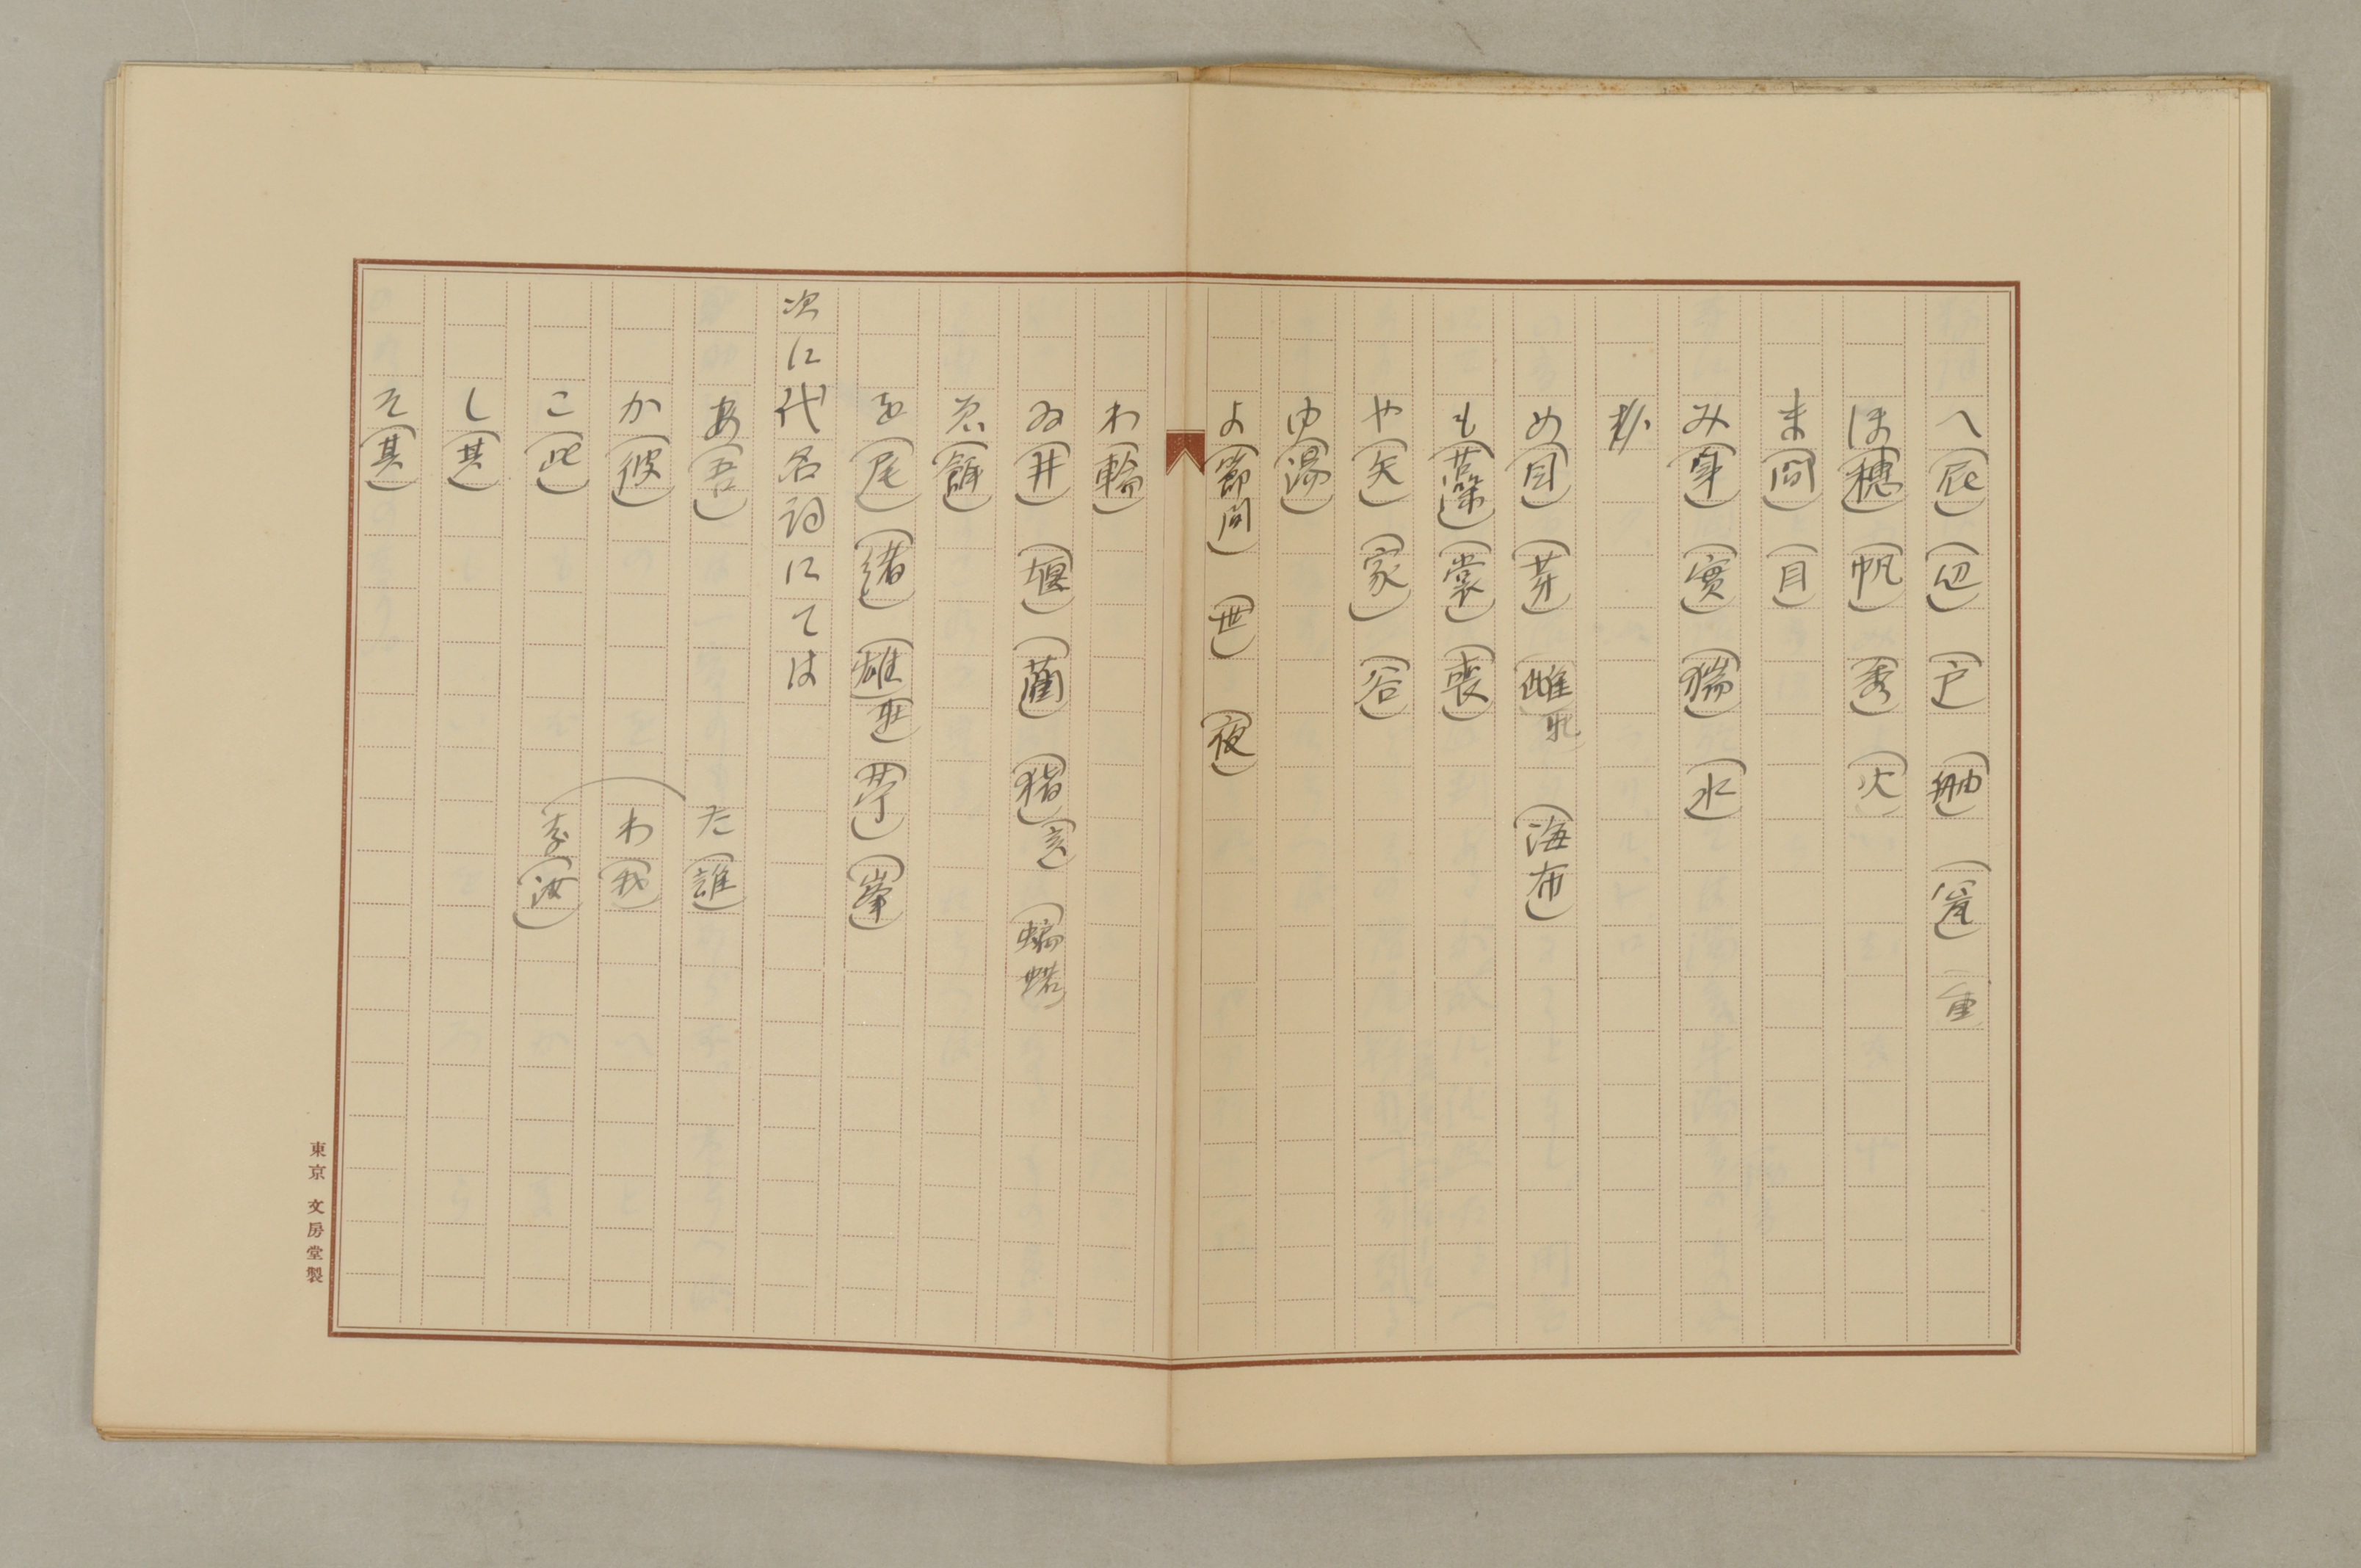 へ(屁)(辺)(戸)(舳)(瓮)(重)
ほ(穂)(帆)(秀)(火)
ま(間)(目)
み(身)(實)(箕)(水)
め(目)(芽)(雌)牝(海布)
も(藻)(裳)(喪)
や(矢)(家)(谷)
ゆ(湯)
よ(節間)(世)(夜)
わ(輪)
ゐ(井)(堰)(藺)(猪)(亥)
ゑ(餌)
を(尾)(緒)(雄)(牡)(苧)(峯)
次に代名詞にては
あ(吾)
た(誰)
か(彼)
わ(我)
こ(此)
な(汝)
し(其)
そ(其)
東京 文房堂製